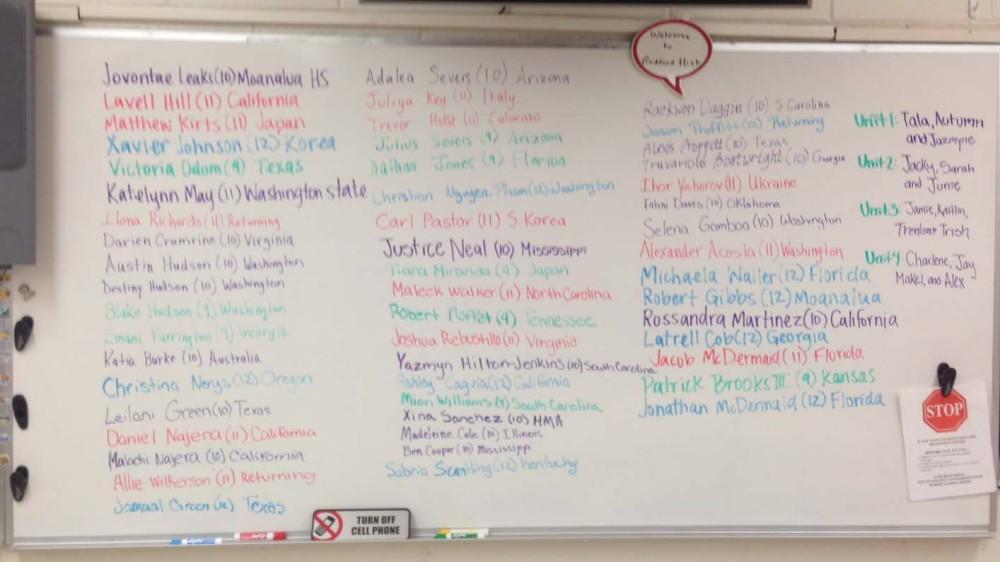 Welcome
to
Radford High
Jovontae Leaks (10) Moanalua HS
Lavell Hill (11) California
Matthew Kirts (11) Japan
Xavier Johnson (12) Korea
Victoria Odom (9) Texas
Katelynn May (11) Washington state
Llona Richards (11) Returning
Darien Crumrine (10) Virginia
Austin Hudson (10) Washington
Destiny Hudson (10) Washington
Blake Hudson (9) Washington
Emani Farrington (9) Georgia
Katia Burke (10) Australia
Christina Nenys (12) Oregon
Leilani Green (10) Texas
Daniel Najera (11) California
Malachi Najera (10) California
Allie Wilkerson (11) Returning
Jamaal Green (12) Texas
Adalea Severs (10) Arizona
Juliya Key (11) Italy
Trevor Hulse (11) Colorado
Julius Severs (9) Arizona
Nathan Jones (9) Florida
Christian Nguyen-Pham (12) Washington
Carl Pastor (11) S. Korea
Justice Neal (10) Mississippi
Tiara Miranda (9) Japan
Maleek Walker (11) North Carolina
Robert (9) Tennessee
Joshua Rebustillo (11) Virginia
Yazmyn Hilton-Jenkins (10) South Carolina
Ashley Caguia (12) California
Mion Williams (9) South Carolina
Xina Sanchez (10) HMA
Madeleine Cole (10) Illinois
Ben Cooper (10) Mississipp
Sabria Scantling (12) Kentucky
Raekwon Daggin (10) S. Carolina
Jason (12) Returning
(10) Texas
Truvariolo Boatwright (10) Georgia
Ihor Yehorov (11) Ukraine
Tahni Davis (10) Oklahoma
Selena Gamboa (10) Washington
Alexander Acosta (11) Washington
Michaela Nailer (12) Florida
Robert Gibbs (12) Moanalua
Rossandra Martinez (10) California
Latrell Cob (12) Georgia
Jacob McDermaid (11) Florida
Patrick Brooks III (9) Kansas
Jonathan McDermaid (12) Florida
Unit 1: Tala, Autumn
and Jazmyne
Unit 2: Jacky, Sarah
and June
Unit 3: Jamie, Kaitlin,
Trenton & Trish
Unit 4: Charlene, Jay
Makel, and Alex
STOP
TURN OFF
CELL PHONE